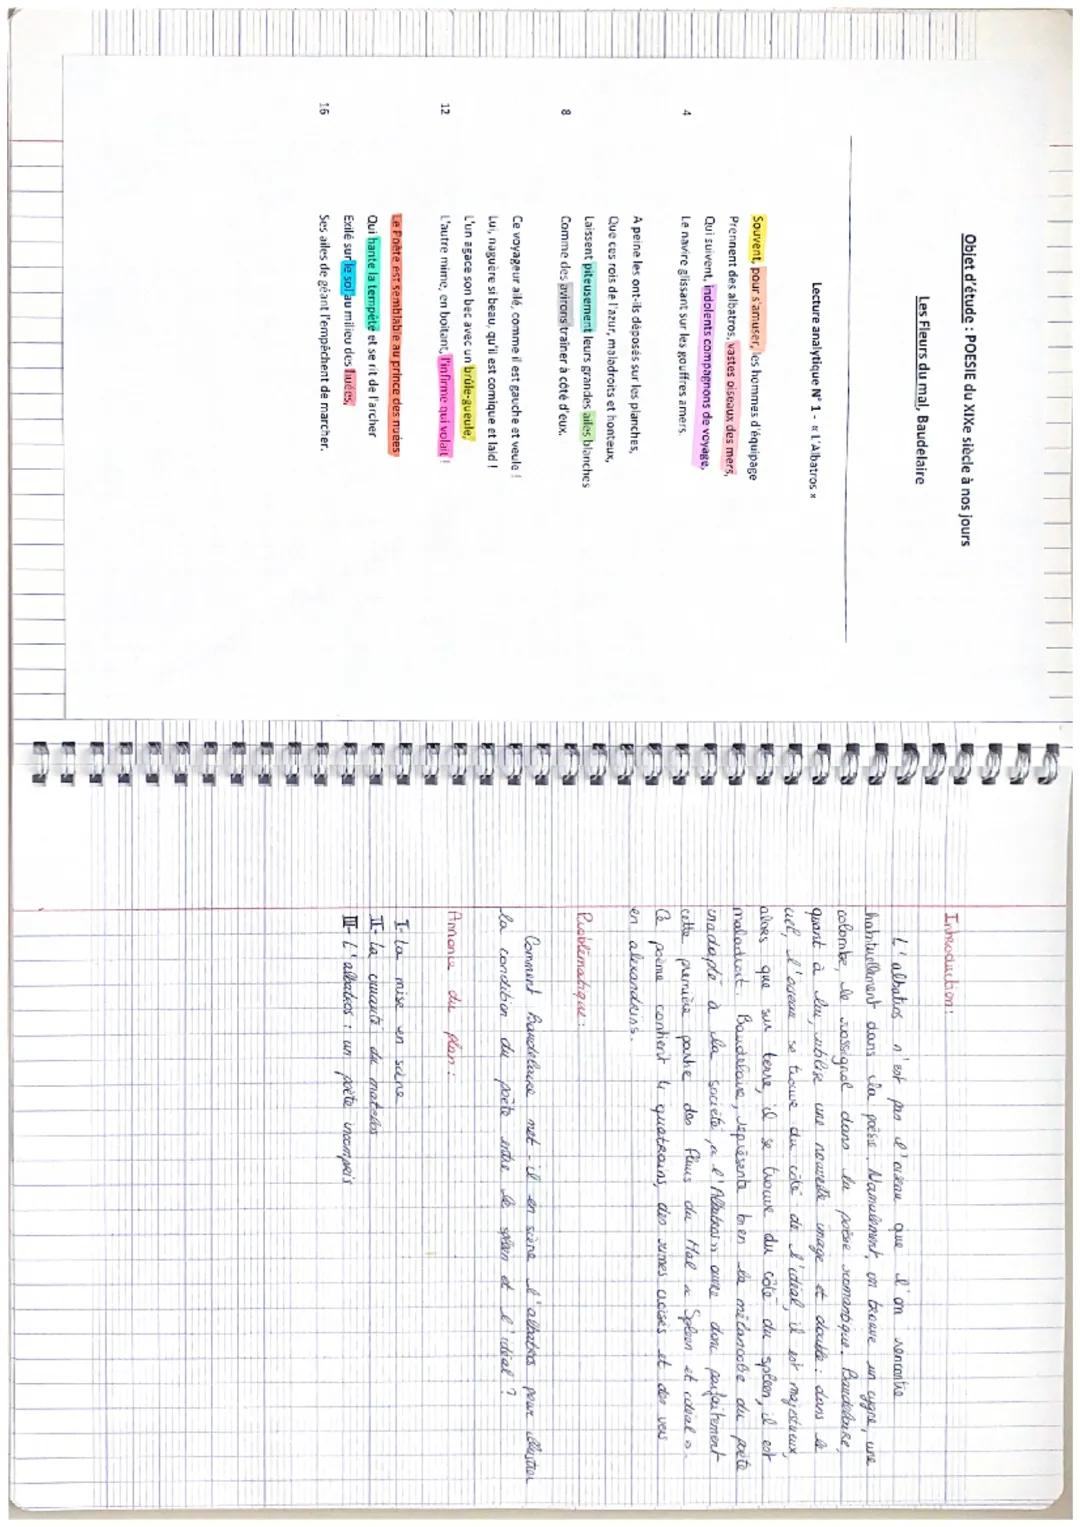 Objet d'étude : POESIE du XIXe siècle à nos jours
Les Fleurs du mal, Baudelaire
Lecture analytique N° 1 - « L'Albatros »
Souvent, pour s'amuser, les hommes d'équipage
Prennent des albatros, vastes oiseaux des mers,
Qui suivent, indolents compagnons de voyage,
4 Le navire glissant sur les gouffres amers.
A peine les ont-ils déposés sur les planches,
Que ces rois de l'azur, maladroits et honteux,
Laissent piteusement leurs grandes ailes blanches
8 Comme des avirons traîner à côté d'eux.
Ce voyageur ailé, comme il est gauche et veule !
Lui, naguère si beau, qu'il est comique et laid !
L'un agace son bec avec un brûle-gueule,
12 L'autre mime, en boitant, l'infirme qui volait !
Le Poète est semblable au prince des nuées
Qui hante la tempête et se rit de l'archer
Exilé sur le sol au milieu des huées,
16 Ses ailes de géant l'empêchent de marcher.
Introduction :
L'albatros n'est pas l'oiseau que l'on rencontre
habituellement dans la poésie. Normalement, on trouve un cygne, une
colombe, le rossignol dans la poésie romantique. Baudelaire,
quant à lui, utilise une nouvelle image et double : dans le
ciel, l'oiseau se trouve du côté de l'idéal, il est majestueux,
alors que sur terre, il se trouve du côté du spleen, il est
maladroit. Baudelaire, représente bien la mélancolie du poète
inadapté à la société, « l'Albatros » ouvre donc parfaitement
cette première partie des Fleurs du Mal « Spleen et idéal ».
Ce poème contient 4 quatrains, des rimes croisés et des vers
en alexandrins.
Problématique :
Comment Baudelaire met-il en scène l'albatros pour illustrer
la condition du poète entre le spleen et l'idéal ?
Annonce du plan :
I- La mise en scène
II- La cruauté du matelos
III- L'albatros : un poète incompris